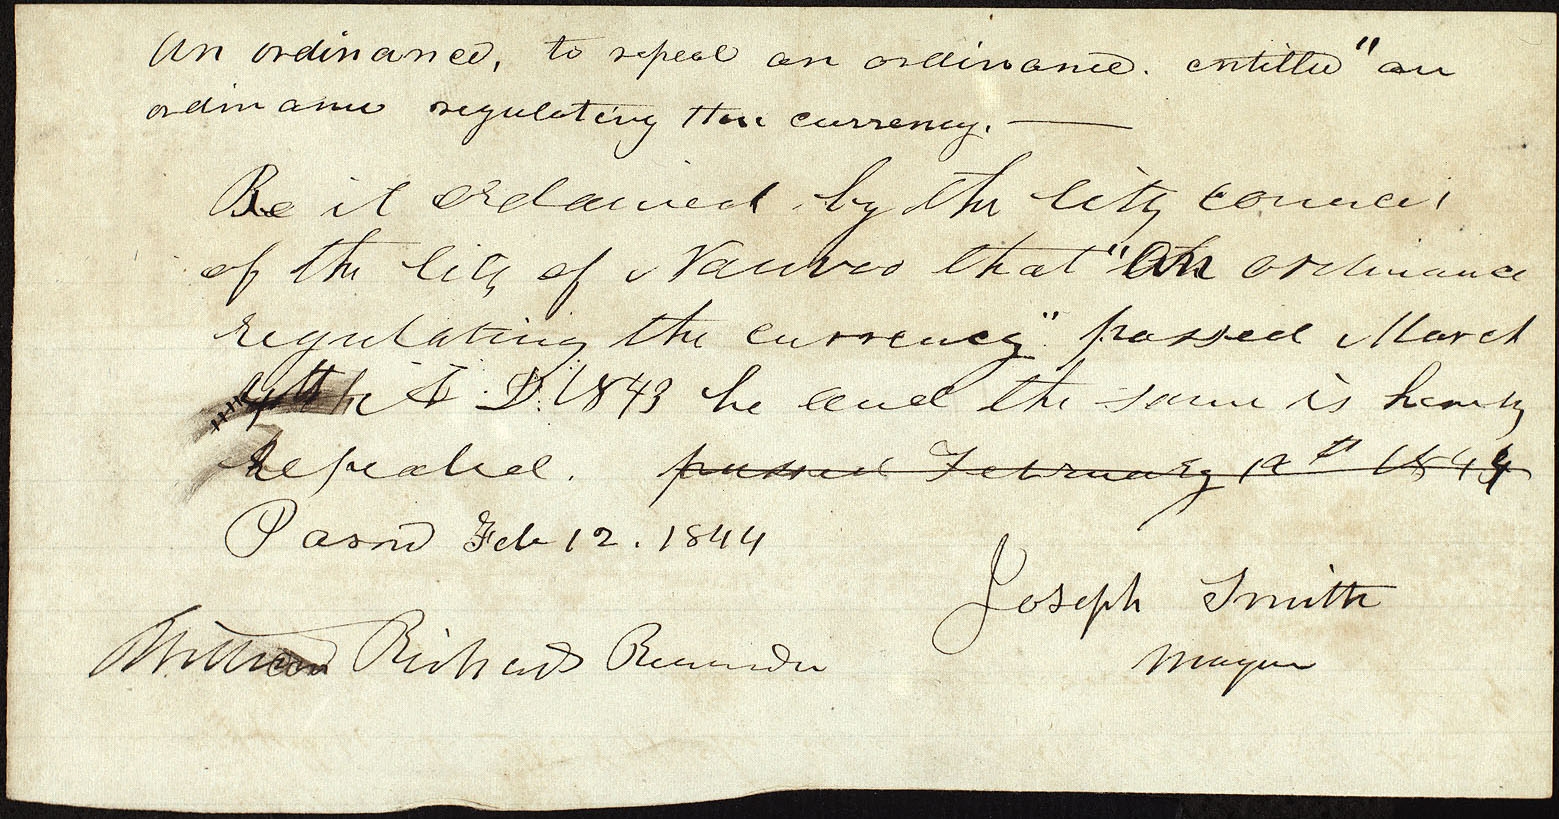 An ordinance, to repeal an ordinance. entitled "an
ordinance regulating the currency. —
Be it ordained by the City Council
of the City of Nauvoo that "An ordinance
regulating the currency" passed March
4th A. D. 1843 be and the same is hereby
repealed. passed February 12th 1844
Passd Feb 12. 1844
Joseph Smith
Willard Richards Recorder
Mayor